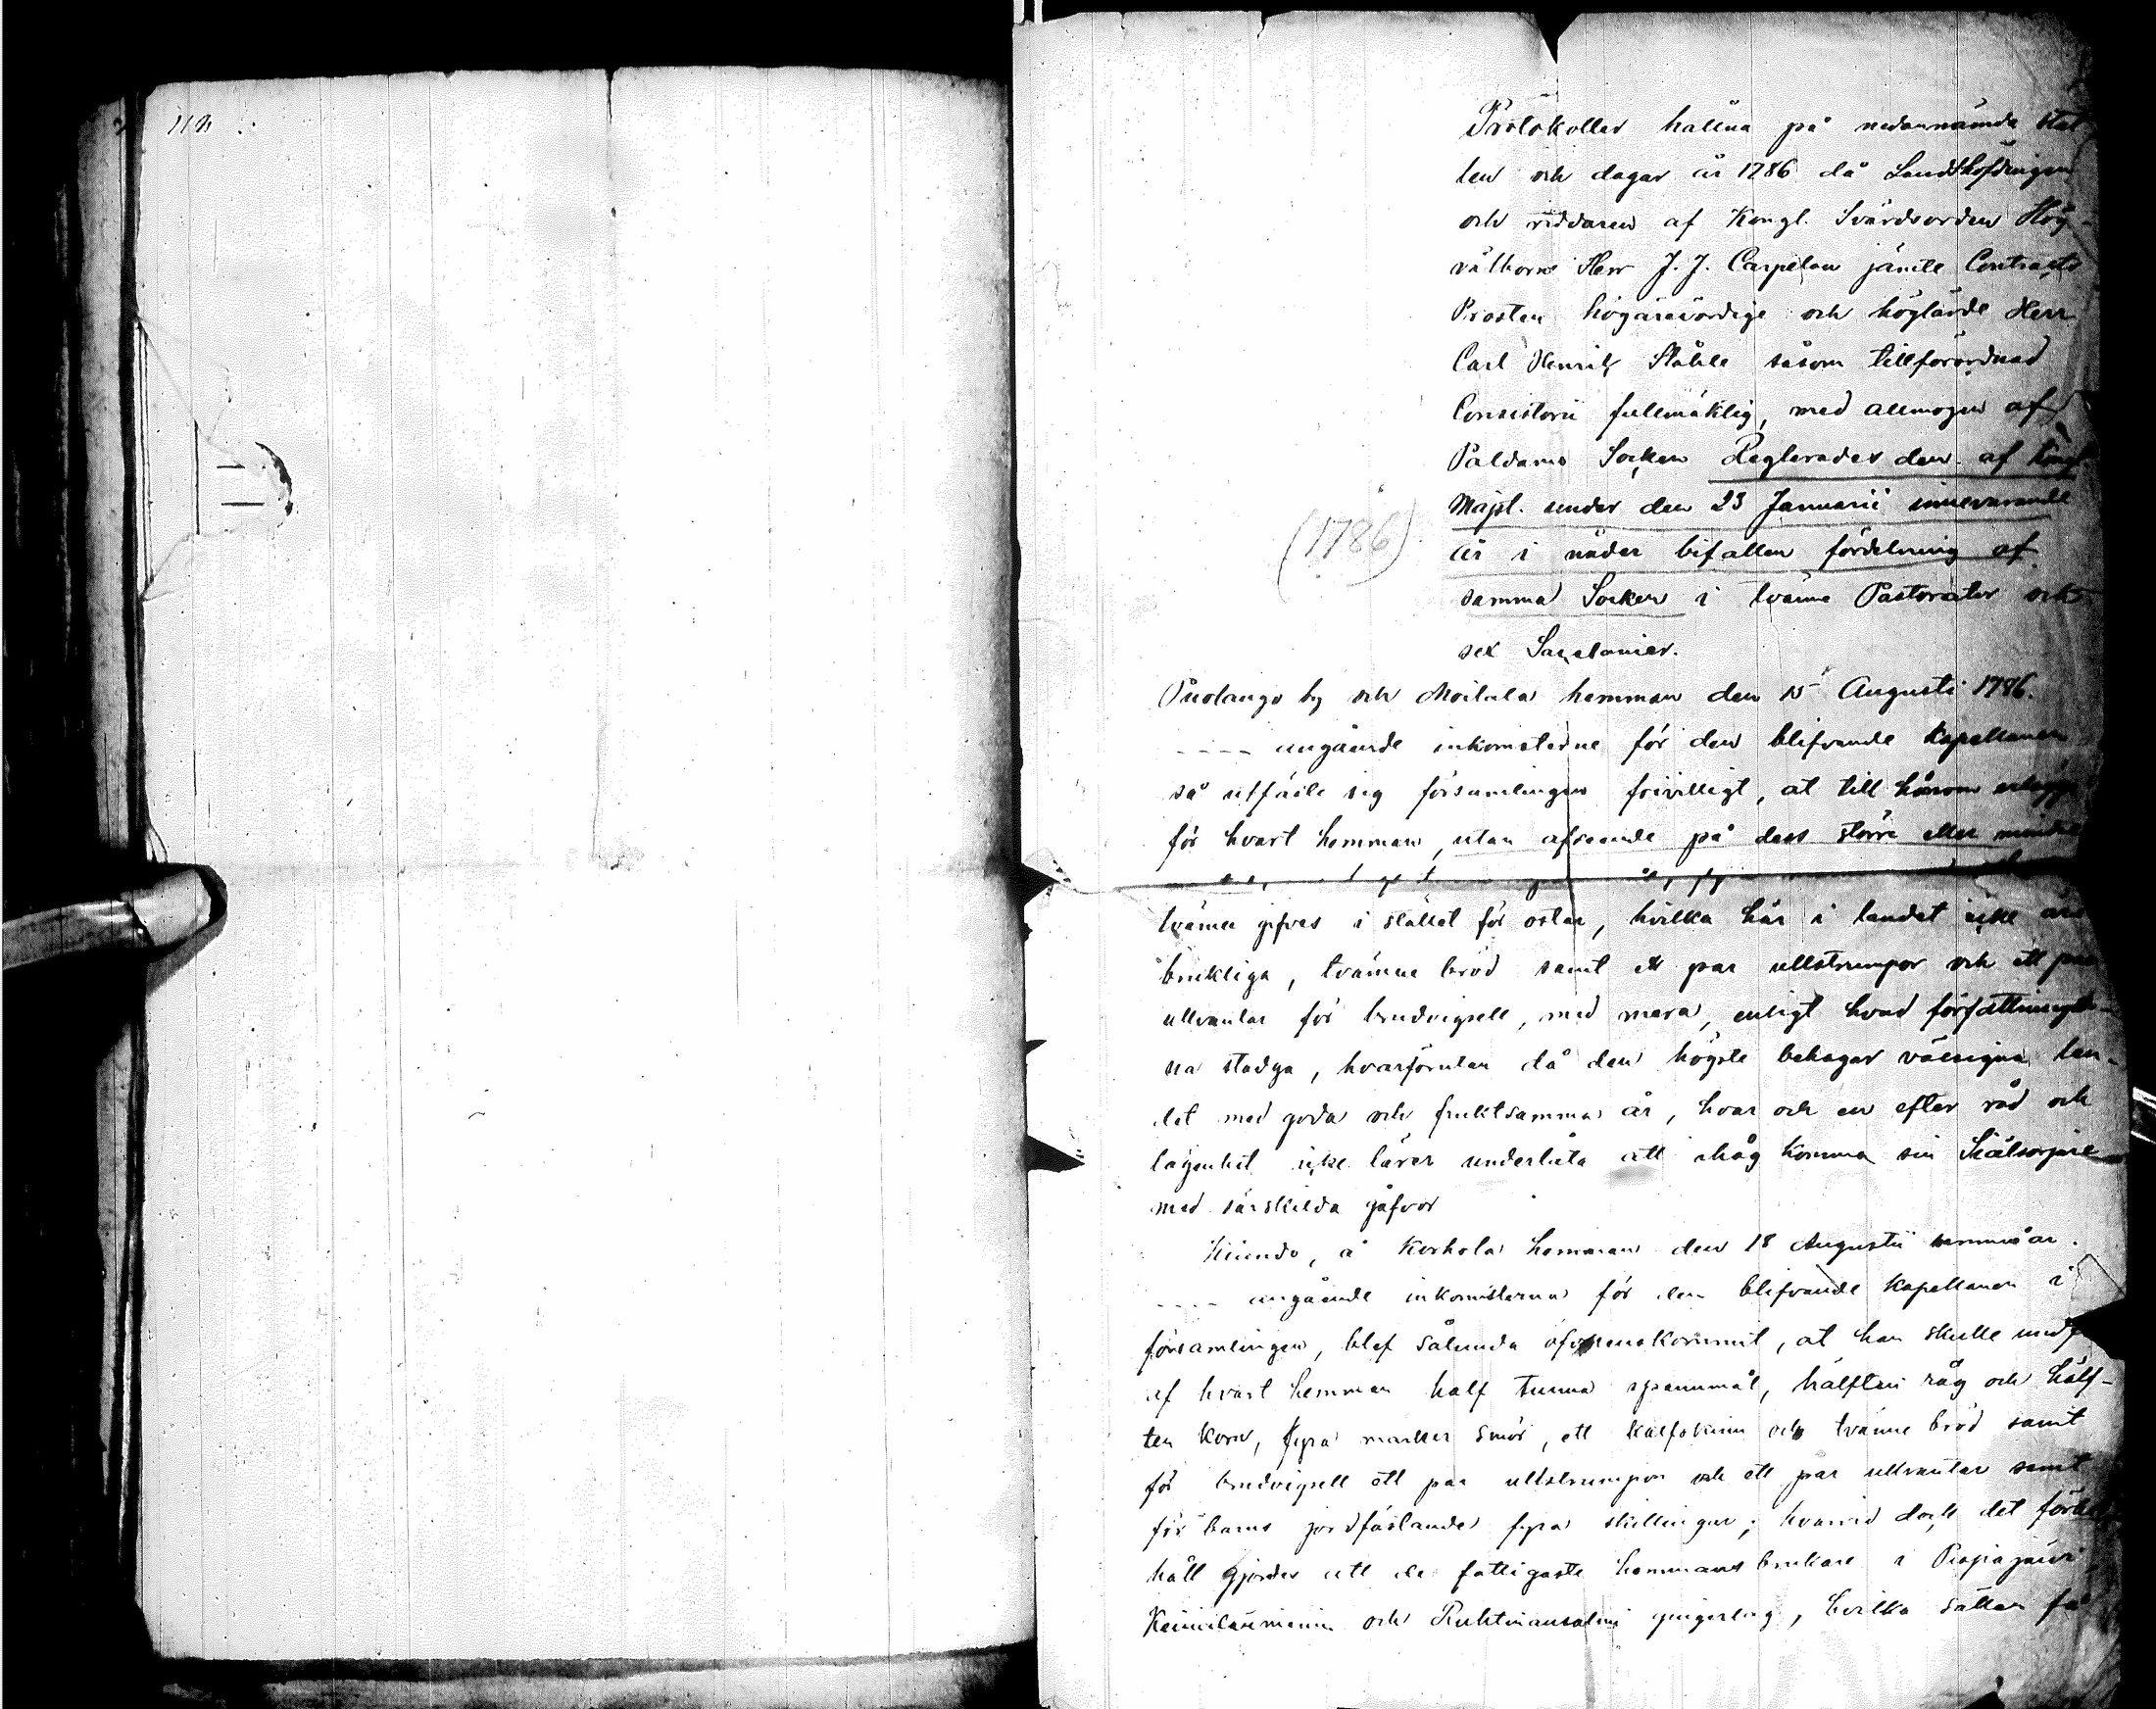 114
Protokoller hållna på nedannämda stäl
len och dagar år 1786 då Landshöfdingen
och riddaren af Kongl. Svärdsorden Hög-
välborne Herr J. J. Carpelan jämte Contracts
Prosten högärevördige och höglärde Herr
Carl Henrik Ståhle såsom tillförordnad
Consistorii fullmäktig, med allmogen af
Paldamo Socken Reglerades den af Kongl.
Majst. under den 23 Januarii innevarande
år i nåder bifallen fördelning af
samma Socken i tvänne Pastorater och
(1786)
sex Sacelanier.
Puolango by och Moilala hemman den 15 Augusti 1786.
---- angående inkomsterne för den blifvande Kapellanen
så utfäste sig församlingen frivilligt, at till honom erlägga
för hvart hemman, utan afseende på dess större eller mindre
tvänne gifves i stället för ostar, hvilka här i landet icke äro
brukliga, tvänne bröd samt ett par ullstrumpor och ett par
ullvantar för brudvigsell, med mera, enligt hvad författningar-
na stadga, hvarförutan då den högste behagar välsigna lan-
det med goda och fruktsamma år, hvar och en efter råd och
lägenhet icke lärer underlåta att ihåg komma sin Själasörjare
med särskilda gåfvor
Kiando, å Korhola hemman den 18 Augustii samma år.
---- angående inkomsterna för den blifvande Kapellanen i
församlingen, blef sålunda öfverenskommit, at han skulle undfå
af hvart hemman half tunna spannmål, hälften råg och hälf-
ten korn, fyra marker smör, ett kalfskinn och tvänne bröd samt
för brudvigsell ett par ullstrumpor och ett par ullvantar samt
för barns jordfästande fyra skillingar; hvarvid dock det förbe
håll gjordes att de fattigaste hemmans brukare i Pispajärvi
och Ruhtinansalmi hvilka sällan få